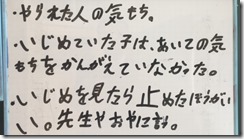 ・やられた人の気もち。
・いじめていた子は、あいての気
もちをかんがえていなかった。
・いじめを見たら止めたほうがい
い。先生やおやに話す。